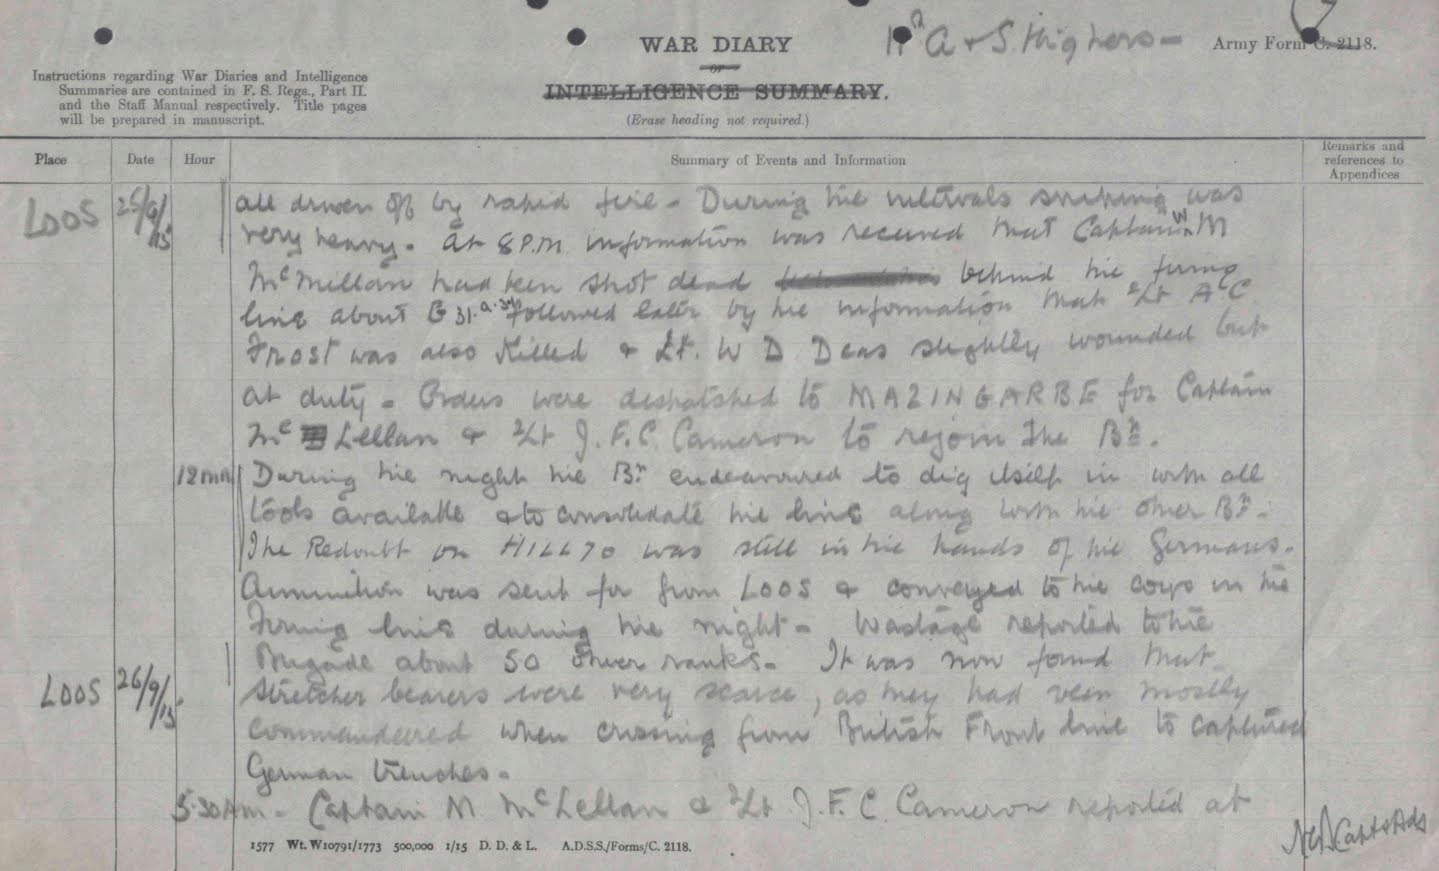 WAR DIARY
or
INTELLIGENCE SUMMARY.
(Erase heading not required.)
11th A & S. Highers -
Army Form C. 2118.
Instructions regarding War Diaries and Intelligence
Summaries are contained in F. S. Regs., Part II.
and the Staff Manual respectively. Title pages
will be prepared in manuscript.
Place Date Hour Summary of Events and Information Remarks and references to Appendices
LOOS 25/9/15 all driven off by rapid fire - During the intervals sniping was
very heavy - At 8 P.M. information was received that Captain W. M
McMillan had been shot dead behind the firing
line about G 31.a.3 followed later by the information that 2/Lt A C
Frost was also killed & Lt. W D Deas slightly wounded but
at duty - Orders were despatched to MAZINGARBE for Captain
Mc Lellan & 2/Lt J. F. C. Cameron to rejoin the Bn.
12 mn During the night the Bn endeavoured to dig itself in with all
tools available & to consolidate the line along with the other Bns.
The Redoubt on HILL 70 was still in the hands of the Germans.
Ammunition was sent for from LOOS & conveyed to the coys in the
Firing line during the night - Wastage reported to the
Brigade about 50 other ranks. It was now found that
LOOS 26/9/15 stretcher bearers were very scarce, as they had been mostly
commandeered when crossing from British Front line to captured
German trenches.
5.30 Am - Captain M McLellan & 2/Lt J. F. C. Cameron reported at
Capt & Adj
1577 Wt. W10791/1773 500,000 1/15 D. D. & L. A.D.S.S./Forms/C. 2118.